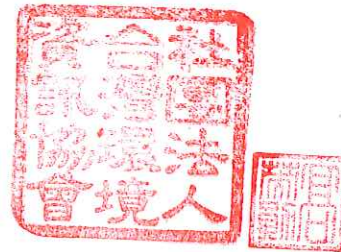 社團法人
台灣環境
資訊協會